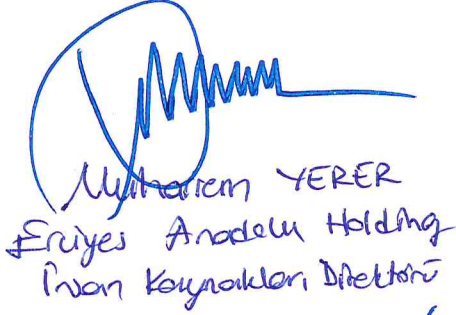 Muharrem YERER
Erciyes Anadolu Holding
İnsan Kaynakları Direktörü